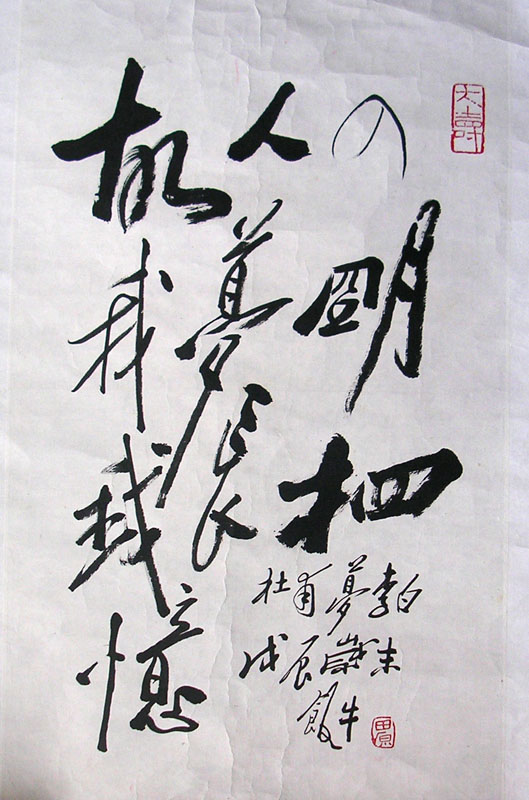 故人入
我夢朙
我長相
憶
杜甫夢李白
戊辰歲末
飯牛
田原